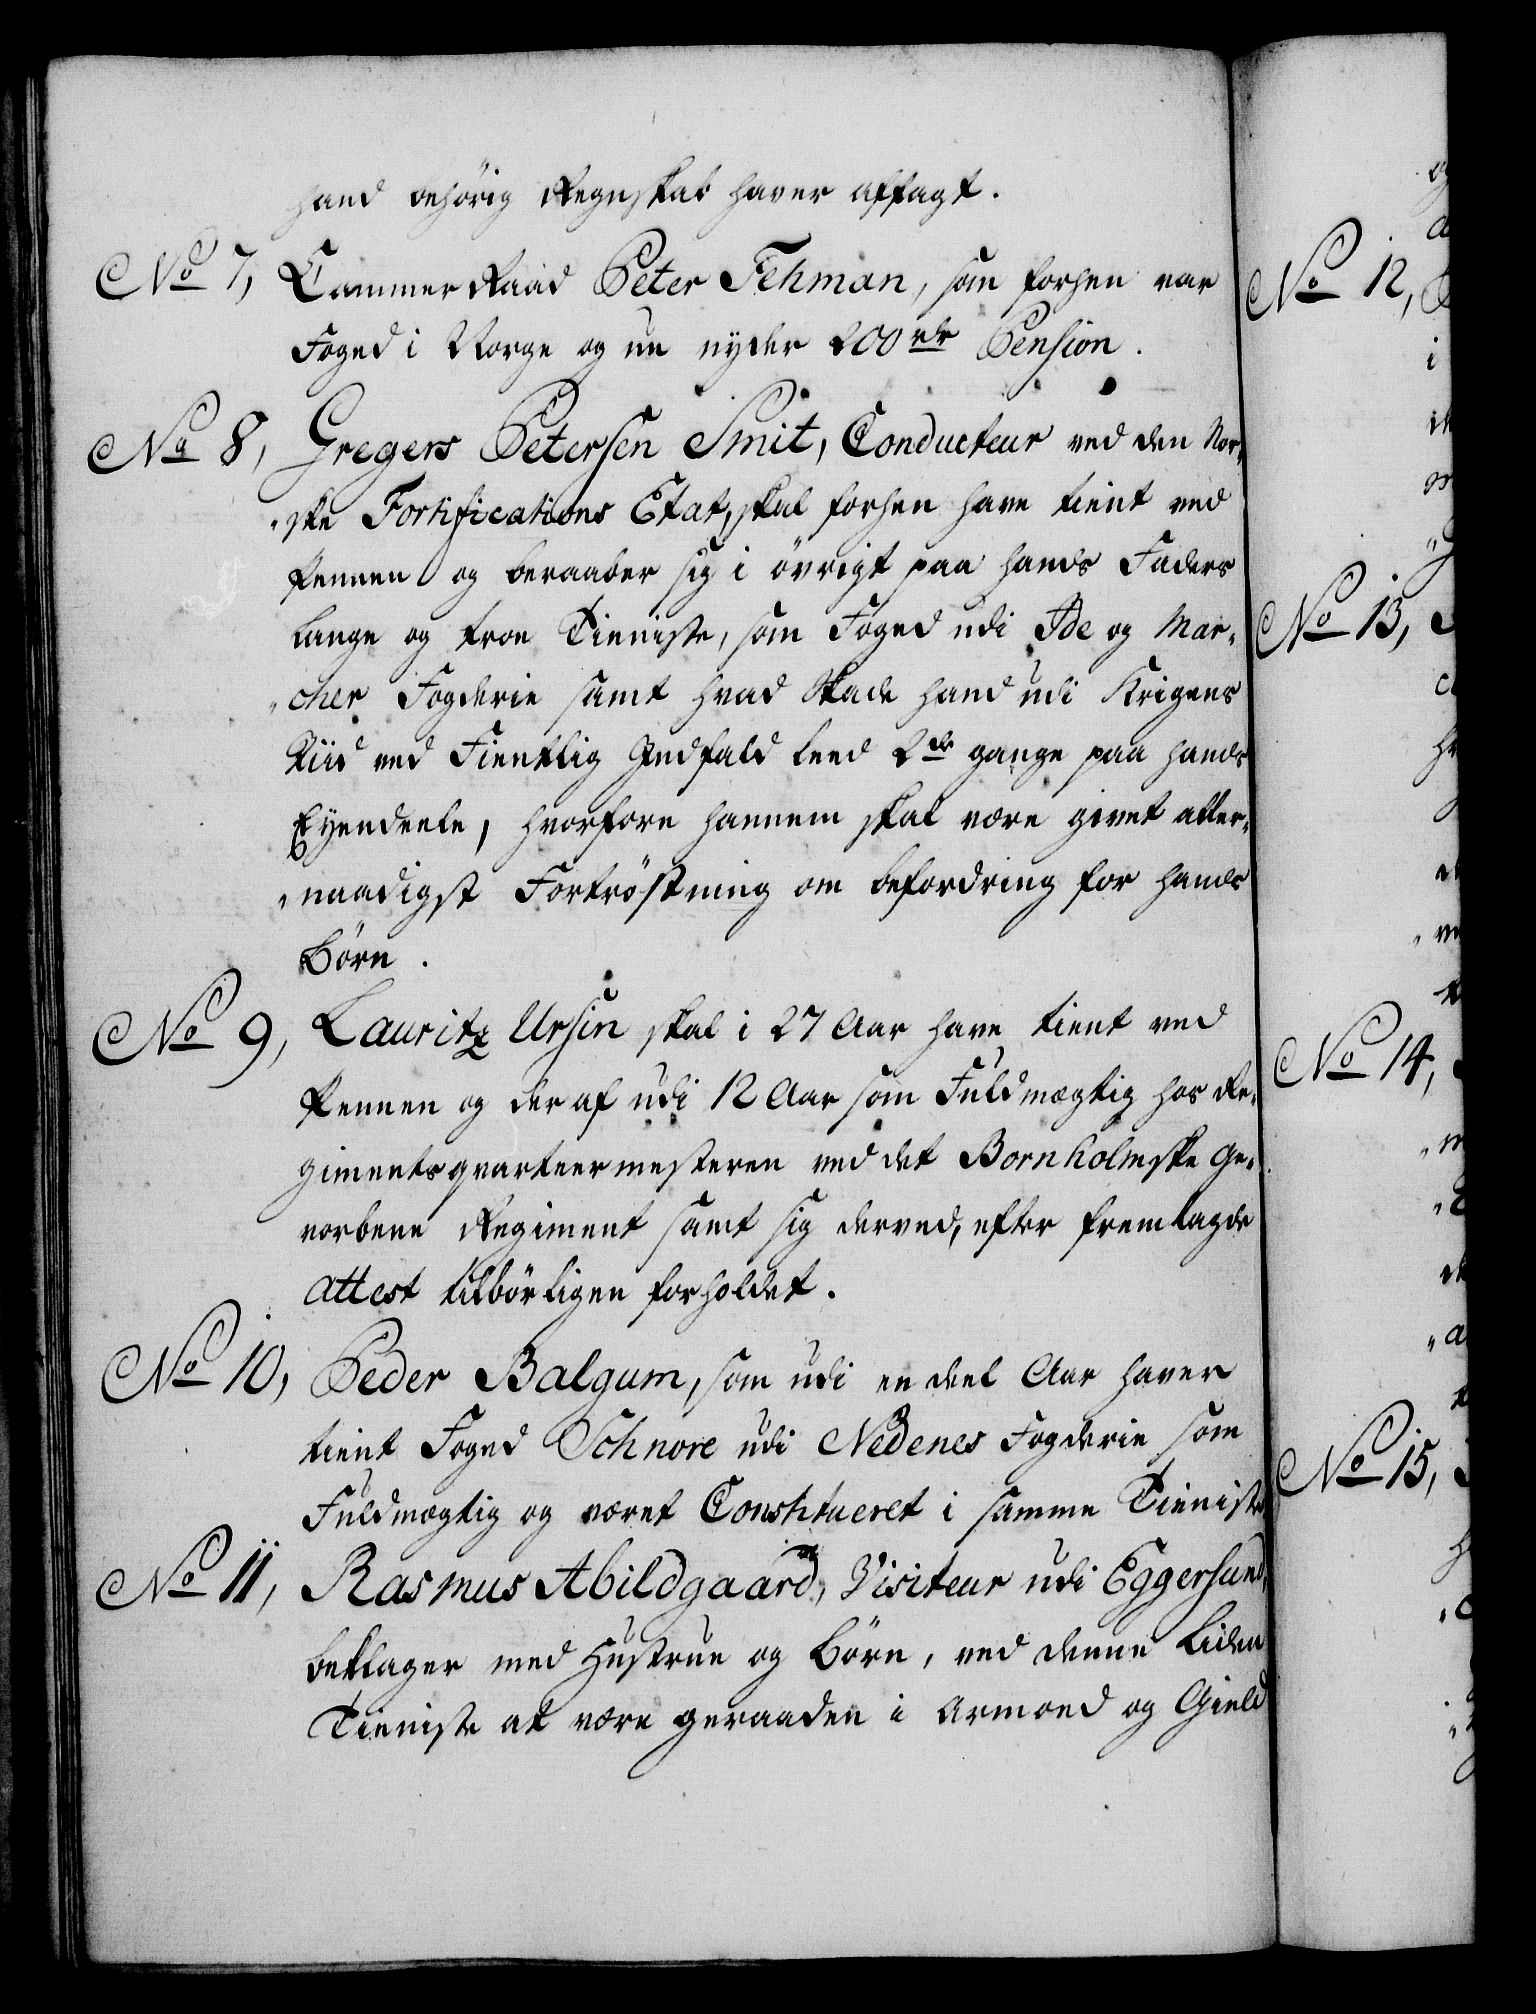 hand behörig Regnskab haver aflagt.
No 7, Cammer Raad Peter Fehman, som forhen var
Foged i Norge og nu nyder 200 rdr Pension.
No 8, Gregers Petersen Smit, Conducteur ved den Nor-
ske Fortifications Etat, skal forhen have tient ved
Pennen og beraaber sig i övrigt paa hands Faders
lange og troe Tieniste, som Foged udi Ide og Mar-
cher Fogderie samt hvad Skade hand udi Krigens
Tiid ved Fientlig Indfald leed 2de gange paa hands
Eyendeele, hvorfore hannem skal være givet aller-
naadigst Fortröstning om befordring for hands
Börn.
No 9, Lauritz Ursin skal i 27 Aar have tient ved
Pennen og der af udi 12 Aar som Fuldmægtig hos Re-
gimentsqvarteermesteren ved det Bornholmske ge-
vorbene Regiment samt sig derved, efter fremlagde
attest tilbörligen forholdet.
No 10, Peder Balgum, som udi en deel Aar haver
tient Foged Schnore udi Nedenes Fogderie som
Fuldmægtig og været Constitueret i samme Tieniste
No 11, Rasmus Abildgaard, Visiteur udi Eggersund,
beklager med Hustrue og Börn, ved denne liden
Tieniste at være geraaden i Armoed og Gield
No 12,
No 13,
No 14,
No 15,